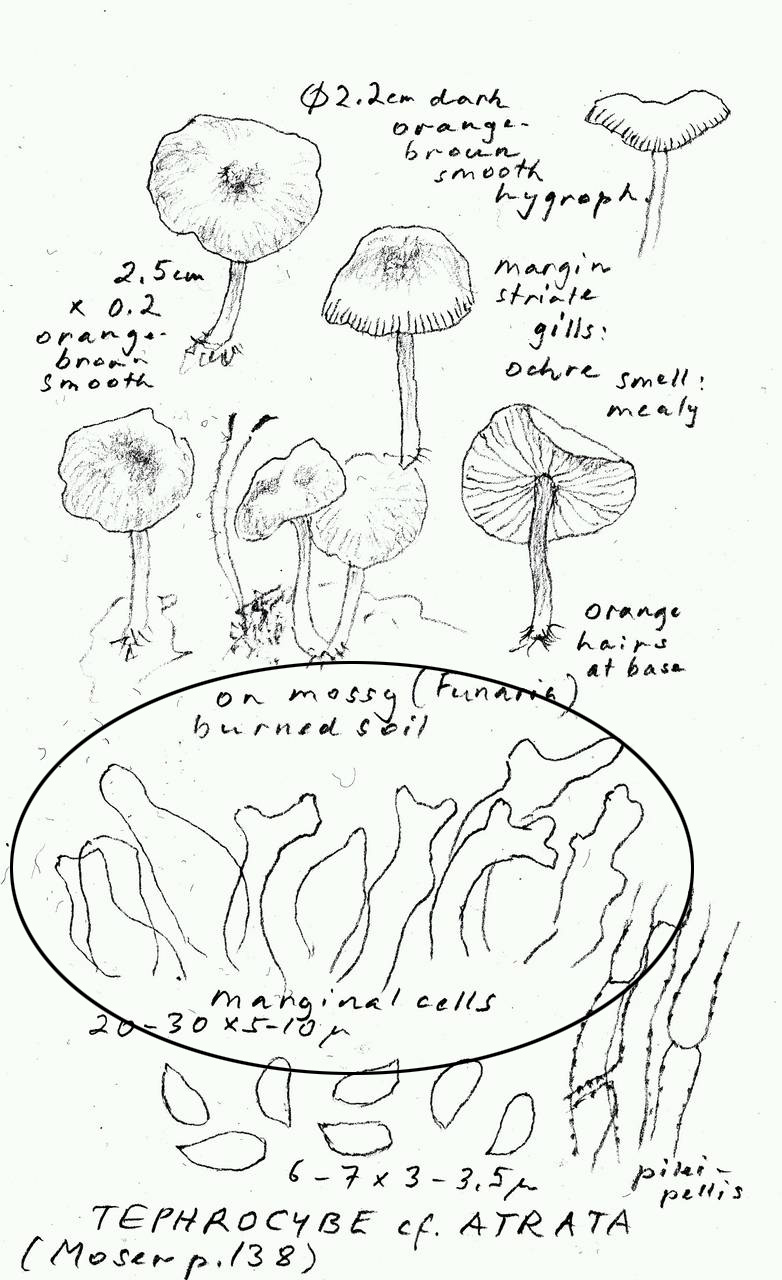 Φ2.2cm dark
orange-
brown
smooth
hygroph.
2,5cm
x 0.2
orange-
brown
smooth
margin
striate
gills:
ochre
smell:
mealy
orange
hairs
at base
on mossy (Funaria)
burned soil
marginal cells
20-30 x 5-10 μ
6-7 x 3-3,5 μ
pilei-
pellis
TEPHROCYBE cf. ATRATA
(Moser p.138)